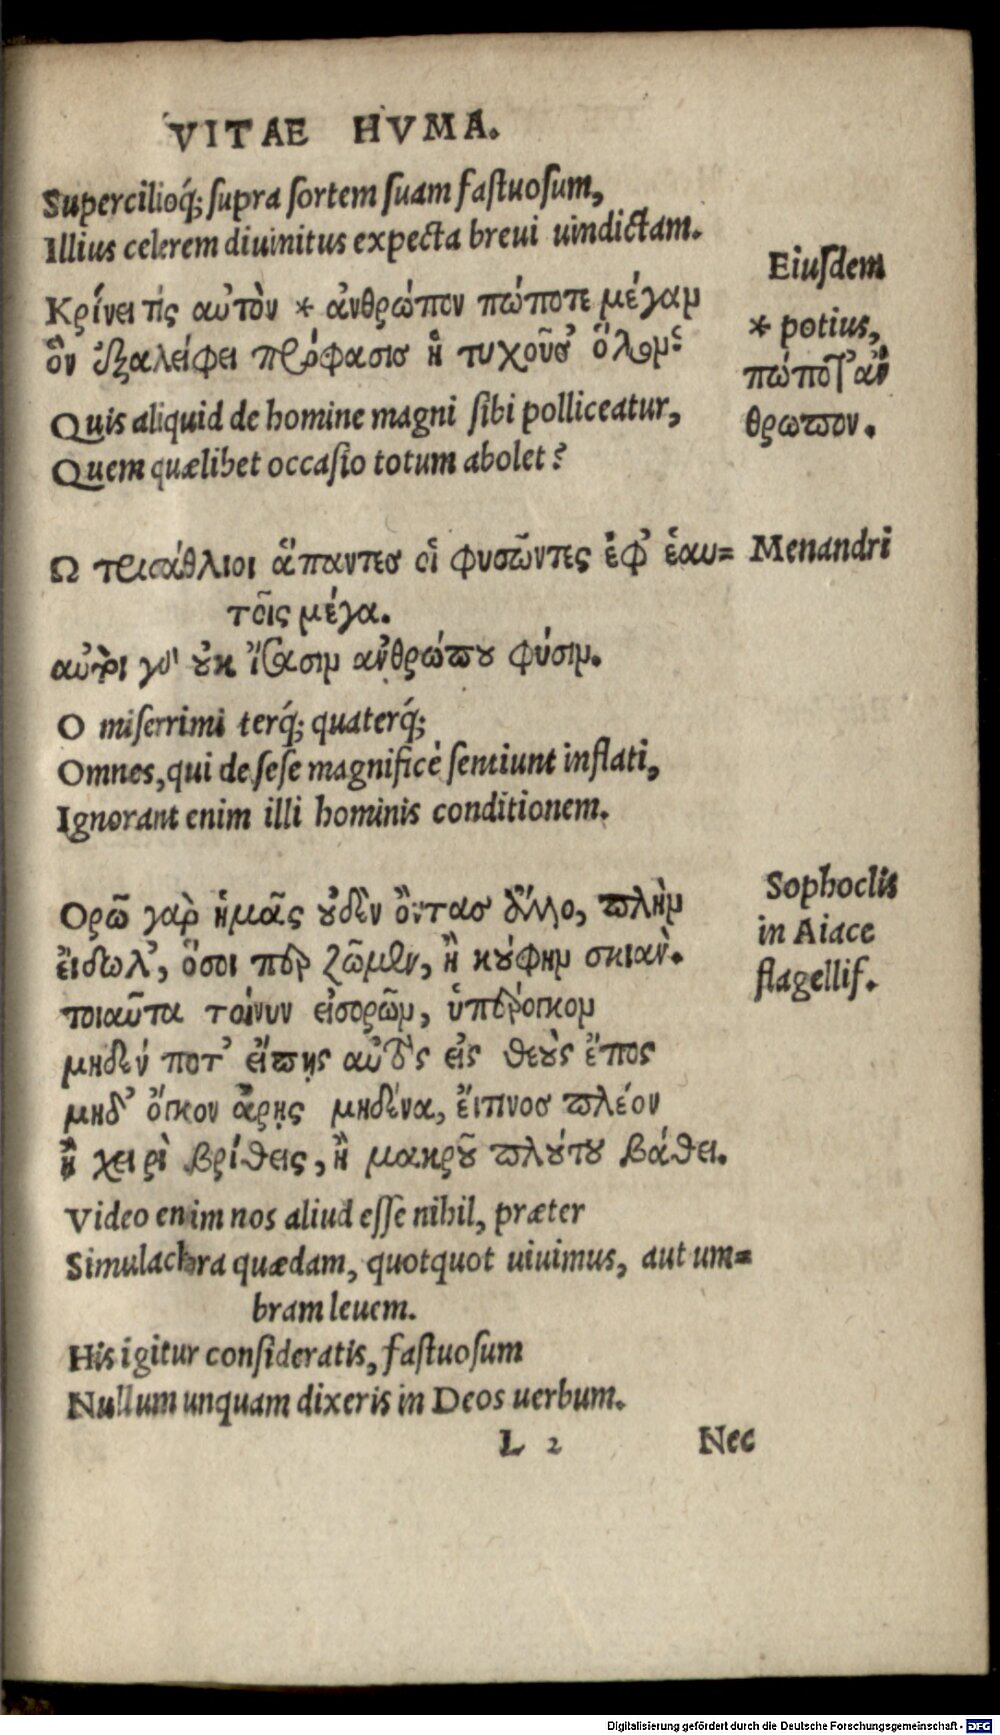 VITAE HVMA.
Supercilioq́; supra sortem suam fastuosum,
Illius celerem diuinitus expecta breui uindictam.
Eiusdem
Κρίνει τίς αὐτὸν * ἀνθρώπον πώποτε μέγαν
* potius,
ὃν ἐξαλείφει πρόφασισ ἡ τυχοῦσ' ὅλον;
πώποτ' ἀν
θρωπον.
Quis aliquid de homine magni sibi polliceatur,
Quem quælibet occasio totum abolet?
Ω τρισάθλιοι ἅπαντεσ οἱ φυσῶντες ἐφ' ἑαυ=
Menandri
τοῖς μέγα.
αὐτοὶ γὸ οὐκ ἴσασιν ἀνθρώπου φύσιν.
O miserrimi terq́; quaterq́;
Omnes, qui de sese magnificè sentiunt inflati,
Ignorant enim illi hominis conditionem.
Sophoclis
Ορῶ γαρ̀ ἡμᾶς οὐδὲν ὄντασ ἄλλο, πλὴν
in Aiace
ἔιδωλ', ὅσοι περ ζῶμεν, ἢ κούφην σκιαν̀.
flagellif.
τοιαῦτα τοίνυν εἰσορῶν, ὑπέρογκον
μηδέν ποτ' εἴπῃς αὐτὸς εἰς θεοὺς ἔπος
μηδ' ὄγκον ἄρῃς μηδένα, ἔιτινοσ πλέον
ἢ χειρὶ βρίθεις, ἢ μακροῦ πλούτου βάθει.
Video enim nos aliud esse nihil, præter
Simulachra quædam, quotquot uiuimus, aut um=
bram leuem.
His igitur consideratis, fastuosum
Nullum unquam dixeris in Deos uerbum.
L 2
Nec
Digitalisierung gefördert durch die Deutsche Forschungsgemeinschaft - DFG